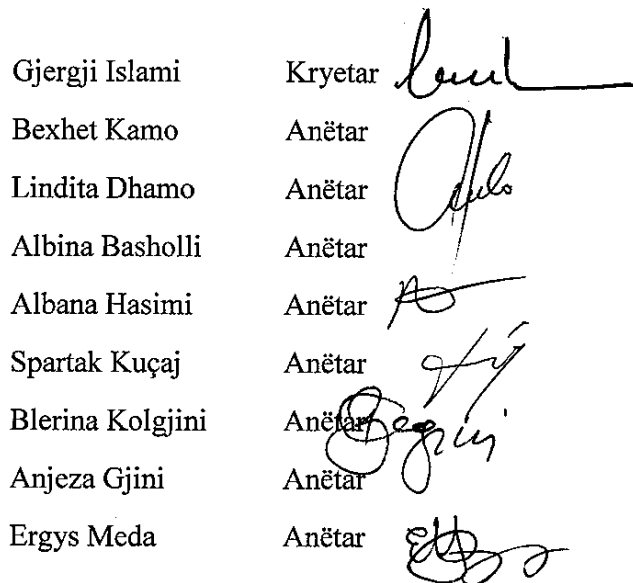 Gjergji Islami Kryetar
Bexhet Kamo Anëtar
Lindita Dhamo Anëtar
Albina Basholli Anëtar
Albana Hasimi Anëtar
Spartak Kuçaj Anëtar
Blerina Kolgjini Anëtar
Anjeza Gjini Anëtar
Ergys Meda Anëtar